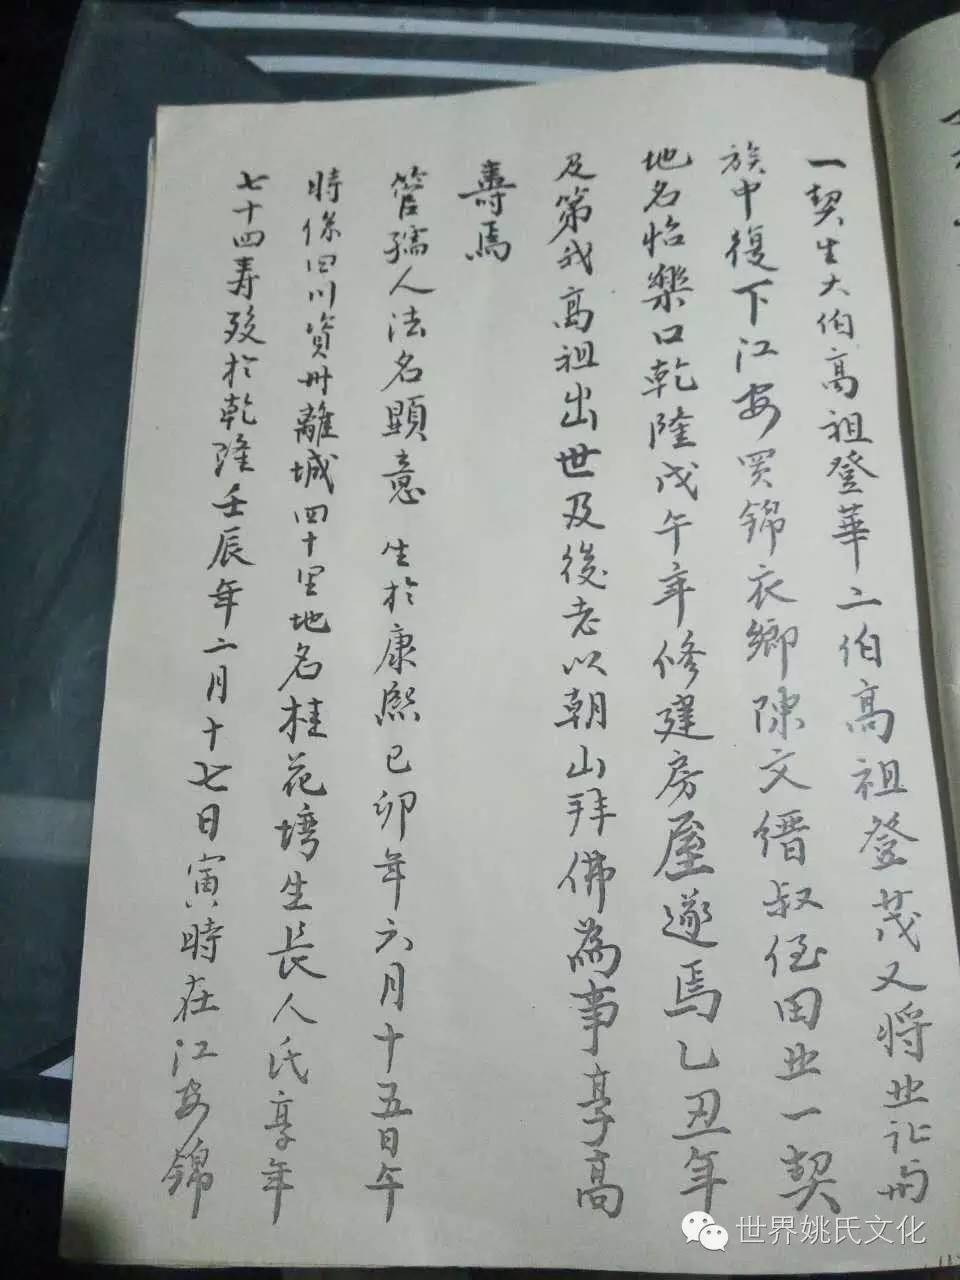 一契生大伯高祖登華二伯高祖登茂又将业让与
族中復下江安買錦衣鄉陳文縉叔侄田业一契
地名怡樂口乾隆戊午年修建房屋遂焉乙丑年
及第我高祖出世及後老以朝山拜佛為事享高
壽焉
管孺人法名顯意 生於康熙己卯年六月十五日午
時係四川資州離城四十里地名桂花塆生長人氏享年
七十四寿殁於乾隆壬辰年二月十七日寅時在江安錦
世界姚氏文化